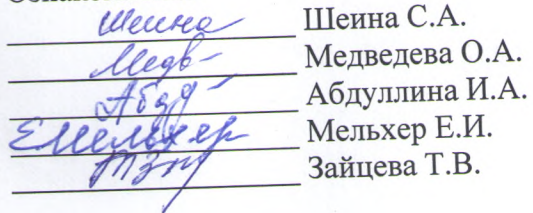 Шеина Шеина С.А.
Медв- Медведева О.А.
Абду- Абдуллина И.А.
ЕМельхер Мельхер Е.И.
ТЗ Зайцева Т.В.